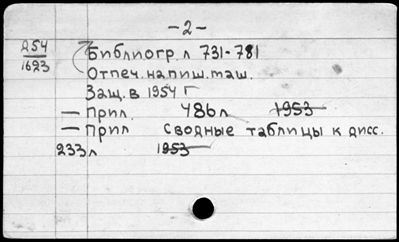 -2-
254
1623
Библиогр. л 731-781
Отпеч. на пиш. маш.
Защ. в 1954 г
— Прил. 486 л 1953
— Прил Сводные таблицы к дисс.
233 л 1953